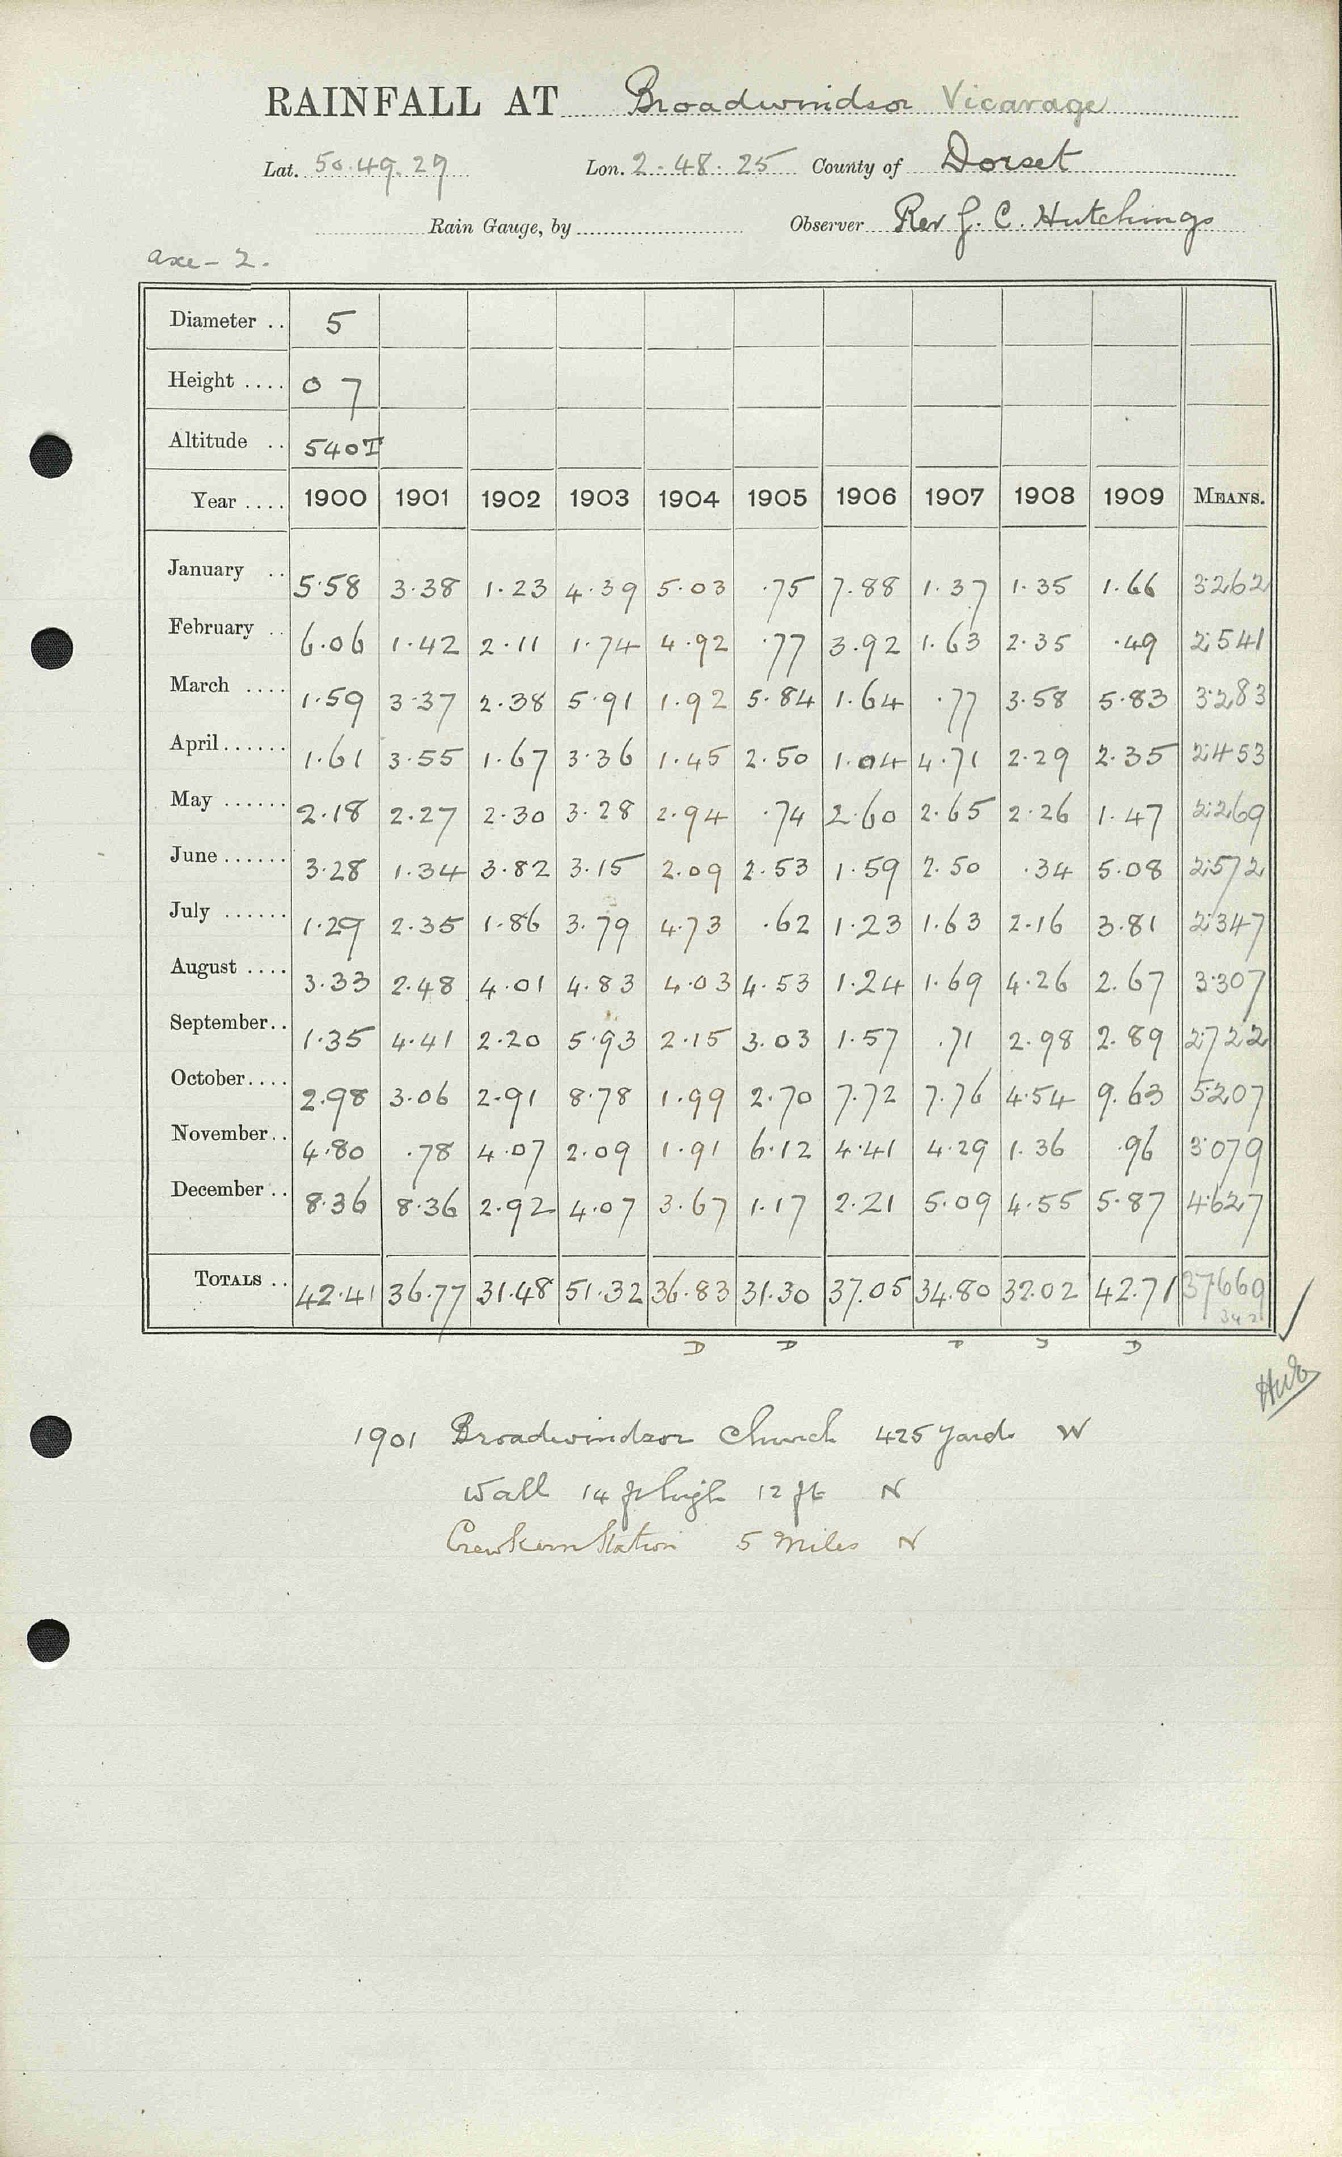 RAINFALL AT Broadwindsor Vicarage
Lat. 50.49.29 Lon. 2.48.25 County of Dorset
Rain Gauge, by Observer Rev J. C. Hutchings
Axe - 2.
Diameter .. 5
Height .... 0 7
Altitude .. 540T
Year .... 1900 1901 1902 1903 1904 1905 1906 1907 1908 1909 MEANS.
January .. 5.58 3.38 1.23 4.39 5.03 .75 7.88 1.37 1.35 1.66 3.262
February .. 6.06 1.42 2.11 1.74 4.92 .77 3.92 1.63 2.35 .49 2.541
March .... 1.59 3.37 2.38 5.91 1.92 5.84 1.64 .77 3.58 5.83 3.283
April ...... 1.61 3.55 1.67 3.36 1.45 2.50 1.04 4.71 2.29 2.35 2.453
May ...... 2.18 2.27 2.30 3.28 2.94 .74 2.60 2.65 2.26 1.47 2.269
June ...... 3.28 1.34 3.82 3.15 2.09 2.53 1.59 2.50 .34 5.08 2.572
July ...... 1.29 2.35 1.86 3.79 4.73 .62 1.23 1.63 2.16 3.81 2.347
August .... 3.33 2.48 4.01 4.83 4.03 4.53 1.24 1.69 4.26 2.67 3.307
September .. 1.35 4.41 2.20 5.93 2.15 3.03 1.57 .71 2.98 2.89 2.722
October .... 2.98 3.06 2.91 8.78 1.99 2.70 7.72 7.76 4.54 9.63 5.207
November .. 4.80 .78 4.07 2.09 1.91 6.12 4.41 4.29 1.36 .96 3.079
December .. 8.36 8.36 2.92 4.07 3.67 1.17 2.21 5.09 4.55 5.87 4.627
TOTALS .. 42.41 36.77 31.48 51.32 36.83 31.30 37.05 34.80 32.02 42.71 37.669
D D D
1901 Broadwindsor Church 425 yards W
Wall 14 ft high 12 ft N
Crewkern Station 5 Miles N